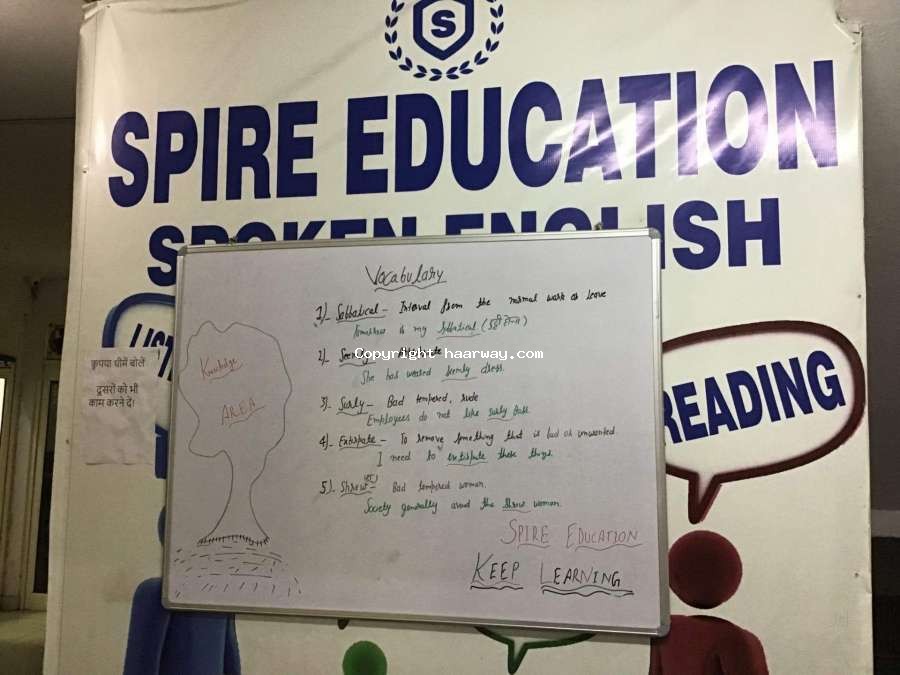 S
SPIRE EDUCATION
SPOKEN ENGLISH
READING
कृपया धीमें बोलें
दूसरों को भी
काम करने दें।
Knowledge
AREA
Vocabulary
1) Sabbatical - Interval from the normal work or leave
is my Sabbatical
2)
She has weared Seemly dress.
3) Surly - Bad tempered, rude
Employees do not like surly boss
4) Extirpate - To remove something that is bad or unwanted.
I need to extirpate these things.
5) Shrew - Bad tempered woman.
Society generally avoid the Shrew woman.
SPIRE EDUCATION
KEEP LEARNING
Copyright haarway.com